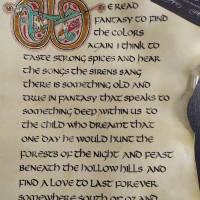 WE READ
FANTASY TO FIND
THE COLORS
AGAIN I THINK TO
TASTE STRONG SPICES AND HEAR
THE SONGS THE SIRENS SANG
THERE IS SOMETHING OLD AND
TRUE IN FANTASY THAT SPEAKS TO
SOMETHING DEEP WITHIN US TO
THE CHILD WHO DREAMT THAT
ONE DAY HE WOULD HUNT THE
FORESTS OF THE NIGHT AND FEAST
BENEATH THE HOLLOW HILLS AND
FIND A LOVE TO LAST FOREVER
SOMEWHERE SOUTH OF OZ AND